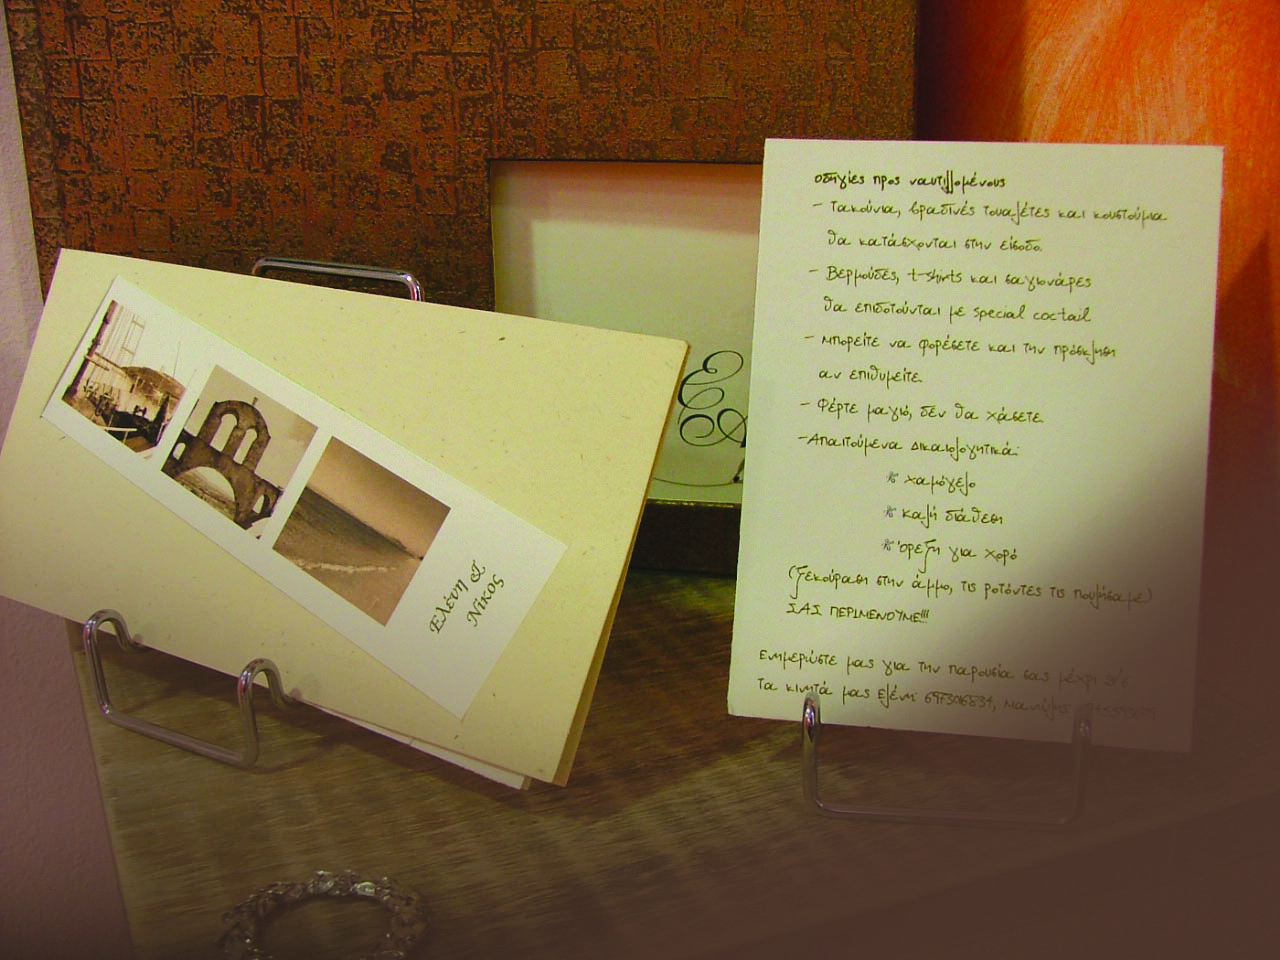 Ελένη &
Νίκος
οδηγίες προς ναυτιλλομένους
- Τακούνια, βραδινές τουαλέτες και κουστούμια
θα κατάσχονται στην είσοδο.
- Βερμούδες, t-shirts και σαγιονάρες
θα επιδοτούνται με special coctail
- Μπορείτε να φορέσετε και την πρόσκληση
αν επιθυμείτε.
- Φέρτε μαγιό, δεν θα χάσετε
- Απαιτούμενα Δικαιολογητικά:
* χαμόγελο
* καλή διάθεση
* όρεξη για χορό
(ξεκούραση στην άμμο, τις ροτόντες τις πουλήσαμε)
ΣΑΣ ΠΕΡΙΜΕΝΟΥΜΕ!!!
Ενημερώστε μας για την παρουσία σας μέχρι
Τα κινητά μας Ελένη: